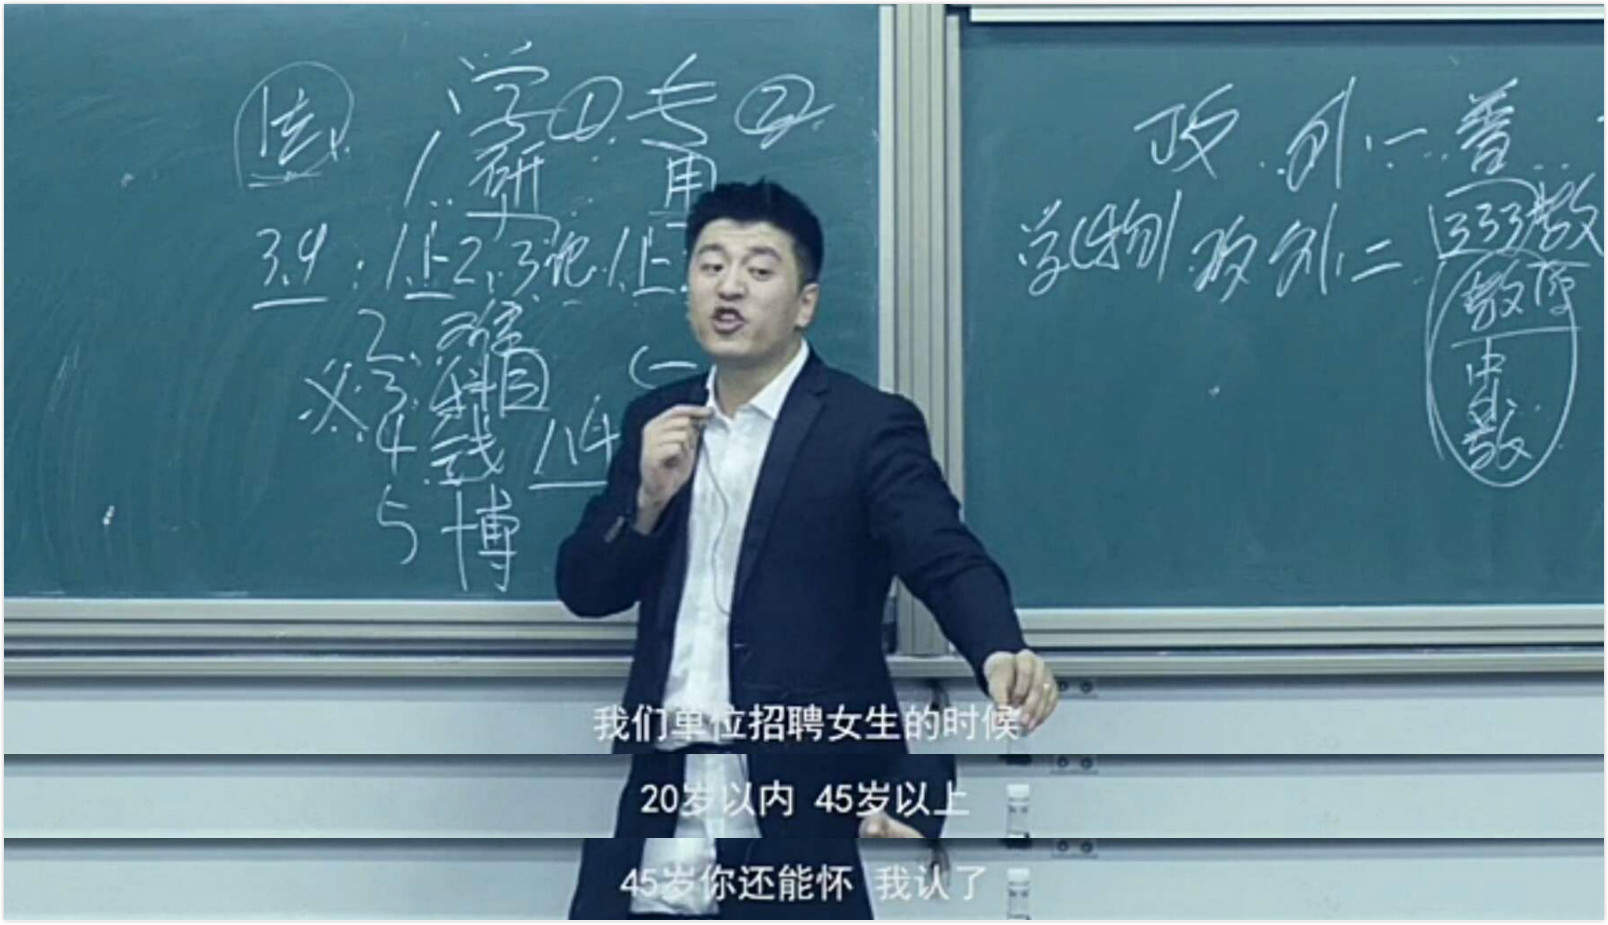 法
学①专②
1.研 用
3.9：1上2.3论.1上
2.难
必3.科目 (一
4.线 114
5 博
政.外.一.普
学(物)政外.二
333教
教育
中
外
教
我们单位招聘女生的时候
20岁以内 45岁以上
45岁你还能怀 我认了